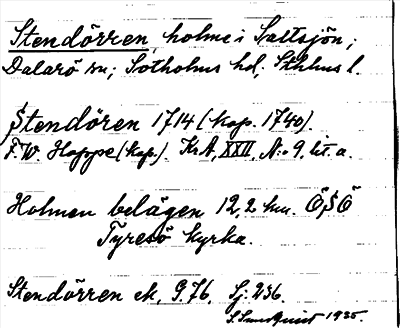 Stendörren, holme i Saltsjön;
Dalarö sn; Sotholms hd. Sthlms l.
Stendören 1714 (kop. 1740).
F. W. Hoppe (kop.). Kr A, XXII, N:o 9. lit. a.
Holmen belägen 12,2 km. ÖSÖ
Tyresö kyrka.
Stendörren ek, 9.76, Sj. 236.
S. Sundquist 1935.